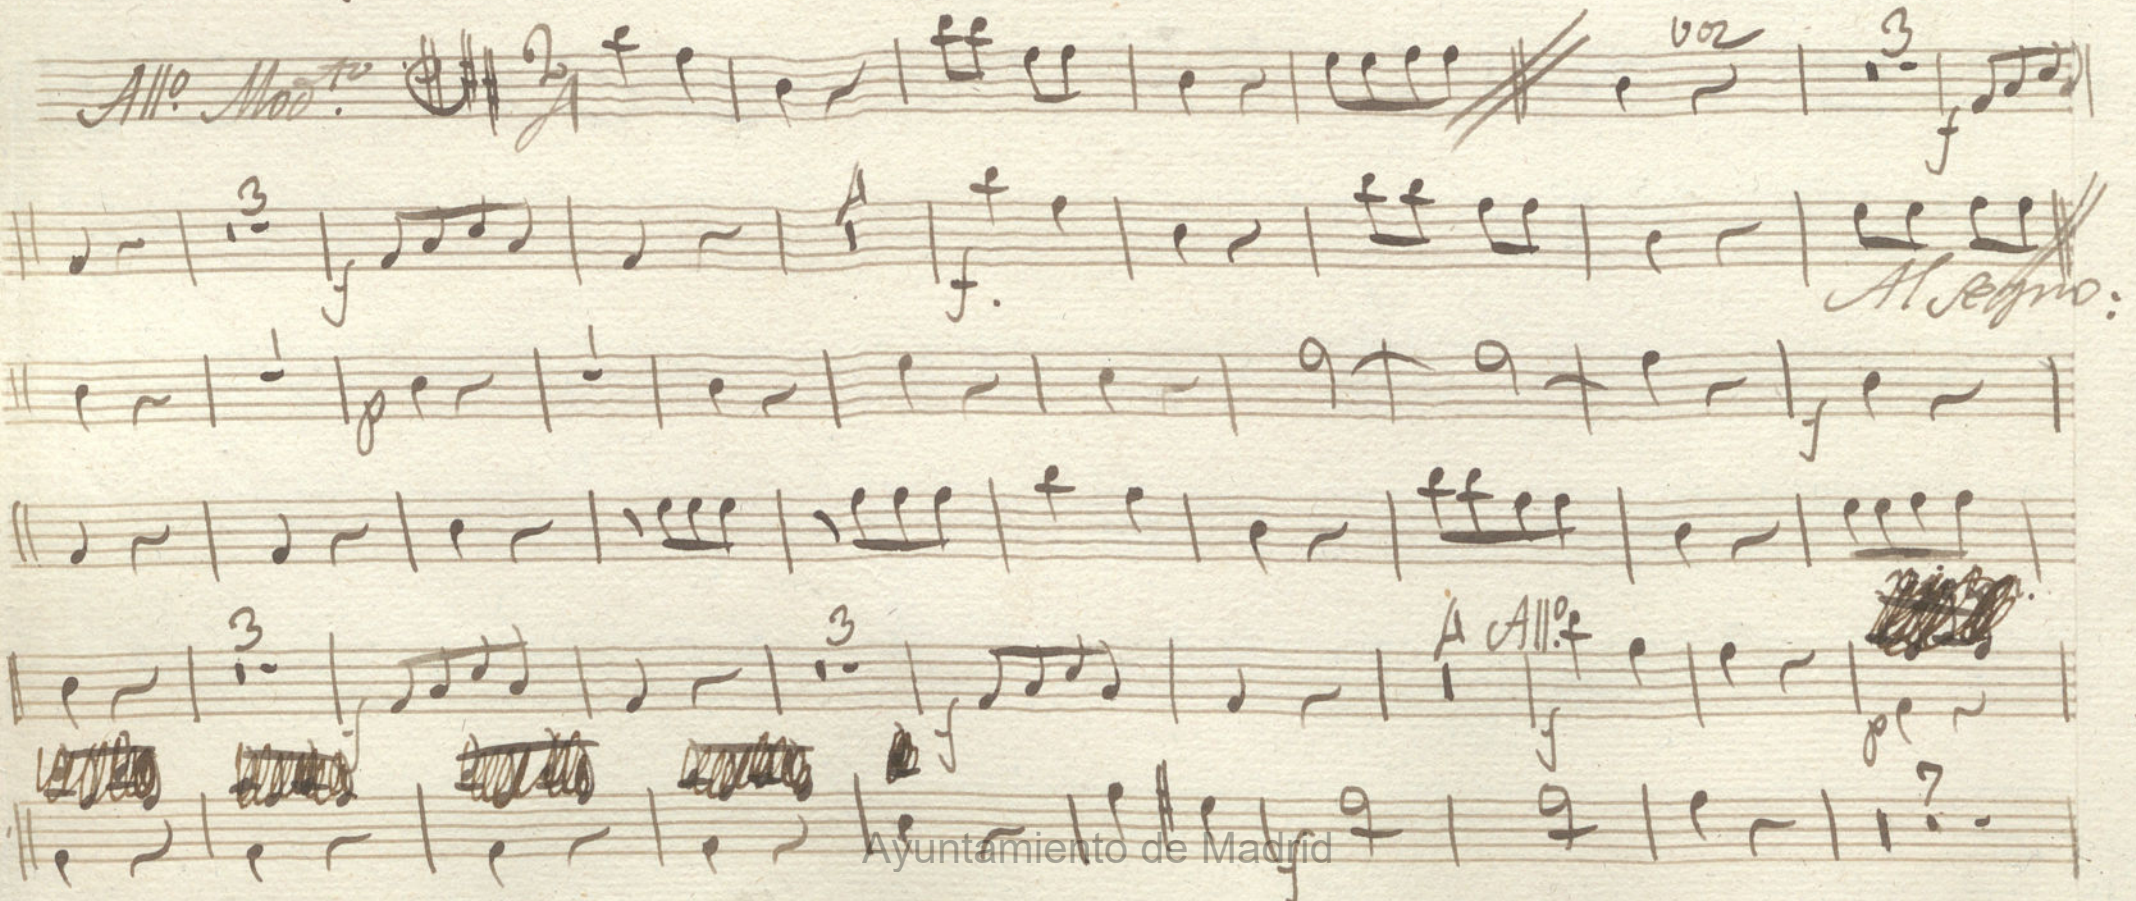 All.º Mod.to 2/4 voz 3 f
3 f 4 f.
Al Segno:
p f
3 f 3 f 4 All.º f p
7 f
Ayuntamiento de Madrid